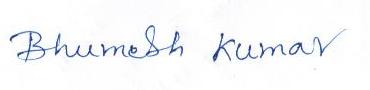 Bhumesh Kumar